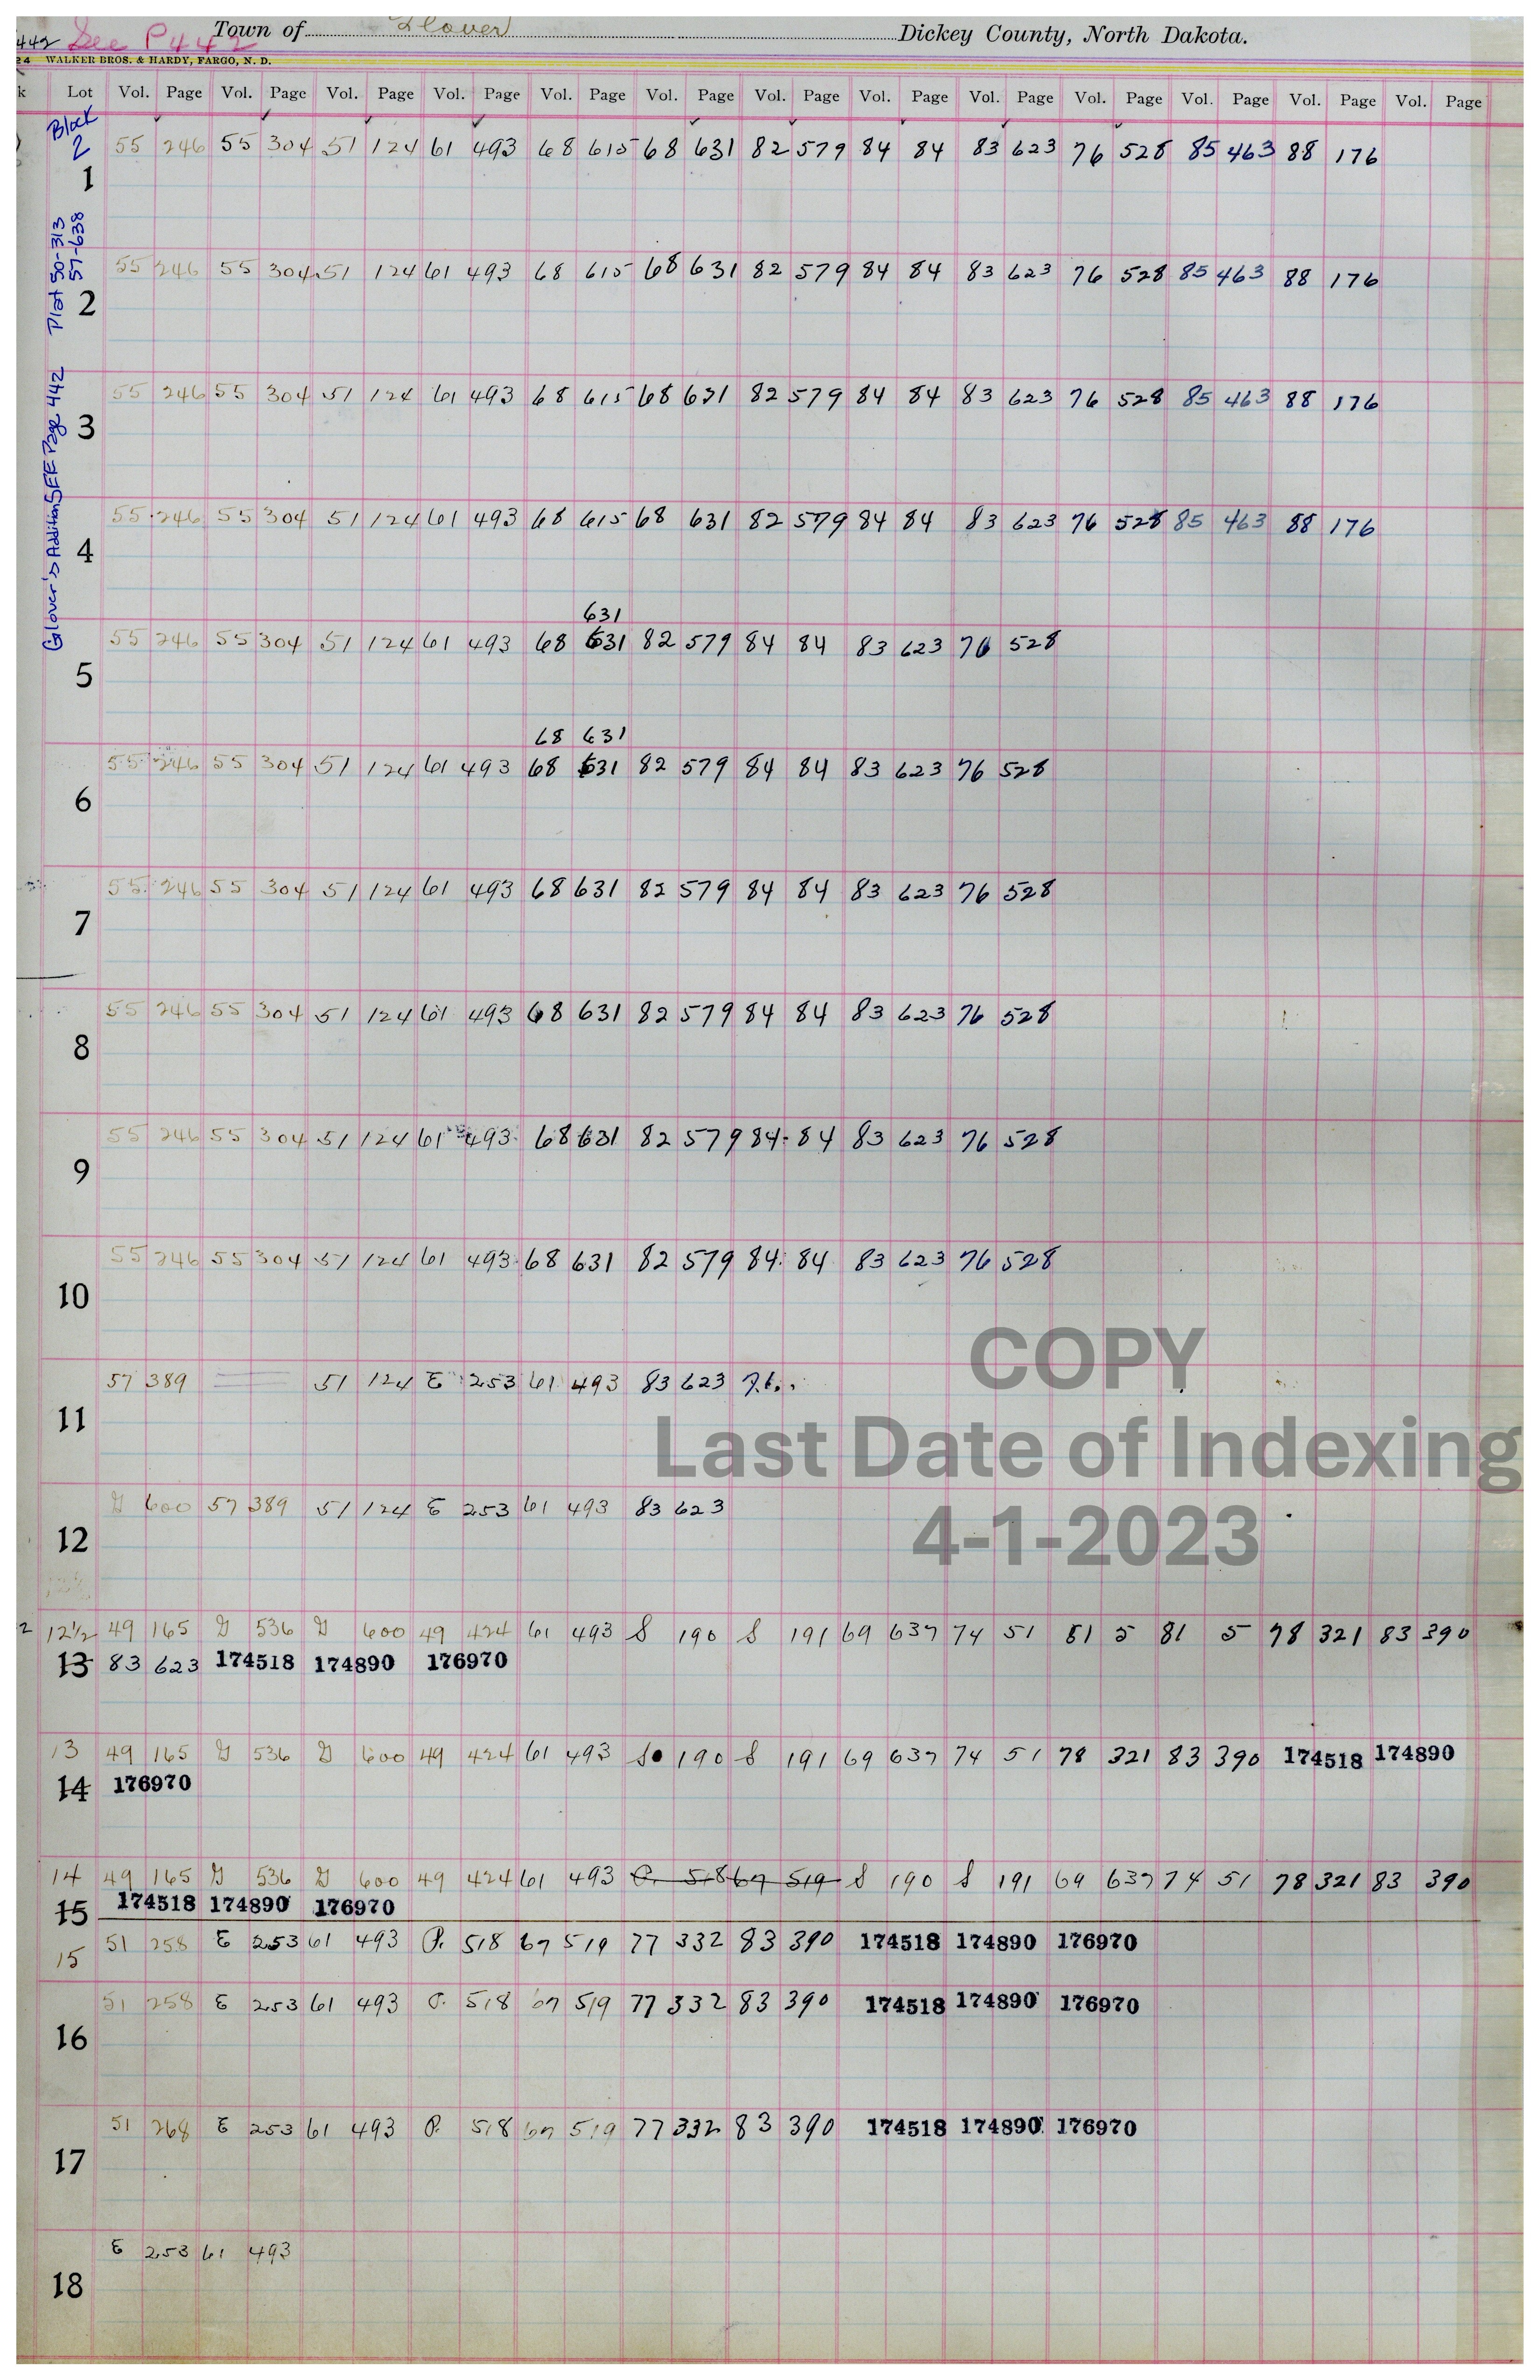 442 See P442 Town of Glover Dickey County, North Dakota.
24 WALKER BROS. & HARDY, FARGO, N. D.
k Lot Vol. Page Vol. Page Vol. Page Vol. Page Vol. Page Vol. Page Vol. Page Vol. Page Vol. Page Vol. Page Vol. Page Vol. Page Vol. Page
Block
2 55 246 55 304 51 124 61 493 68 615 68 631 82 579 84 84 83 623 76 528 85 463 88 176
1
Plat 50-313
57-638
55 246 55 304 51 124 61 493 68 615 68 631 82 579 84 84 83 623 76 528 85 463 88 176
2
Glover's Addition SEE Page 442
55 246 55 304 51 124 61 493 68 615 68 631 82 579 84 84 83 623 76 528 85 463 88 176
3
55 246 55 304 51 124 61 493 68 615 68 631 82 579 84 84 83 623 76 528 85 463 88 176
4
631
55 246 55 304 51 124 61 493 68 631 82 579 84 84 83 623 76 528
5
68 631
55 246 55 304 51 124 61 493 68 631 82 579 84 84 83 623 76 528
6
55 246 55 304 51 124 61 493 68 631 82 579 84 84 83 623 76 528
7
55 246 55 304 51 124 61 493 68 631 82 579 84 84 83 623 76 528
8
55 246 55 304 51 124 61 493 68 631 82 579 84 84 83 623 76 528
9
55 246 55 304 51 124 61 493 68 631 82 579 84 84 83 623 76 528
10
COPY
57 389 51 124 E 253 61 493 83 623
11
Last Date of Indexing
G 600 57 389 51 124 E 253 61 493 83 623
12
4-1-2023
2 12½ 49 165 G 536 G 600 49 424 61 493 S 190 S 191 69 637 74 51 81 5 81 5 78 321 83 390
13 83 623 174518 174890 176970
13 49 165 G 536 G 600 49 424 61 493 S 190 S 191 69 637 74 51 78 321 83 390 174518 174890
14 176970
14 49 165 G 536 G 600 49 424 61 493 P. 518 67 519 S 190 S 191 69 637 74 51 78 321 83 390
15 174518 174890 176970
15 51 258 E 253 61 493 P. 518 67 519 77 332 83 390 174518 174890 176970
51 258 E 253 61 493 P. 518 67 519 77 332 83 390 174518 174890 176970
16
51 268 E 253 61 493 P. 518 67 519 77 332 83 390 174518 174890 176970
17
E 253 61 493
18